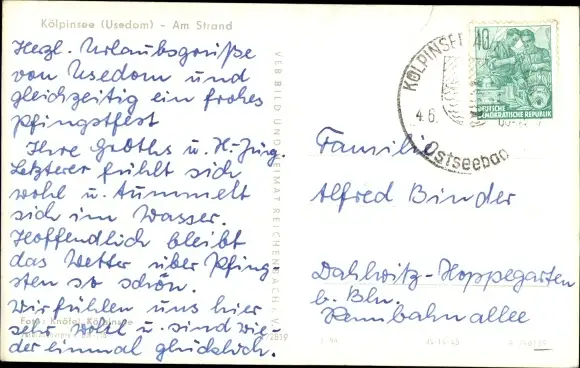 Kölpinsee (Usedom) - Am Strand
Herzl. Urlaubsgrüße
von Usedom und
gleichzeitig ein frohes
Pfingstfest
Ihre Groths u. H-Jürg.
Letzterer fühlt sich
wohl u. tummelt
sich im Wasser.
Hoffendlich bleibt
das Wetter über Pfing-
sten so schön.
Wir fühlen uns hier
sehr wohl u. sind wie-
der einmal glücklich.
Foto: Knälej, Kölpinsee
VEB BILD UND HEIMAT REICHENBACH i. V.
KÖLPINSEE
4.6.
Ostseebad
DEUTSCHE
DEMOKRATISCHE REPUBLIK
Familie
Alfred Binder
Dahlwitz-Hoppegarten
b. Bln.
Rennbahnallee